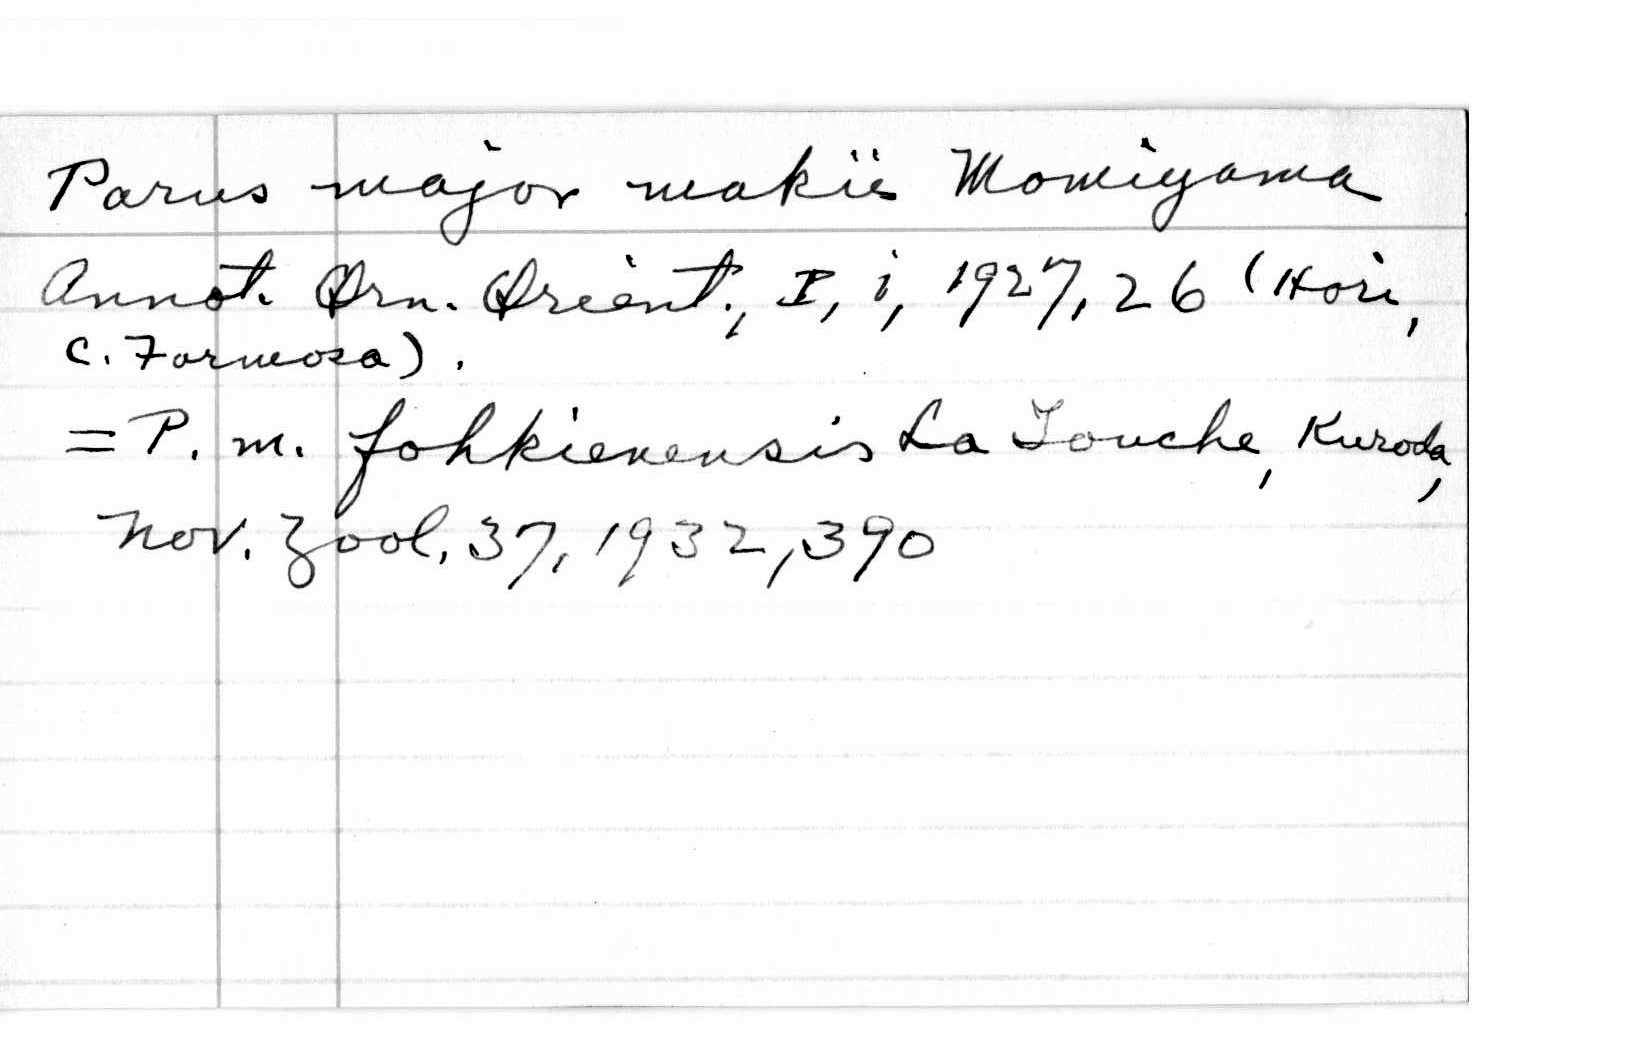 Parus major makii Momiyama
Annot. Orn. Orient., I, i, 1927, 26 (Hori,
C. Formosa).
= P. m. fohkienensis La Touche, Kuroda,
Nov. Zool. 37, 1932, 390